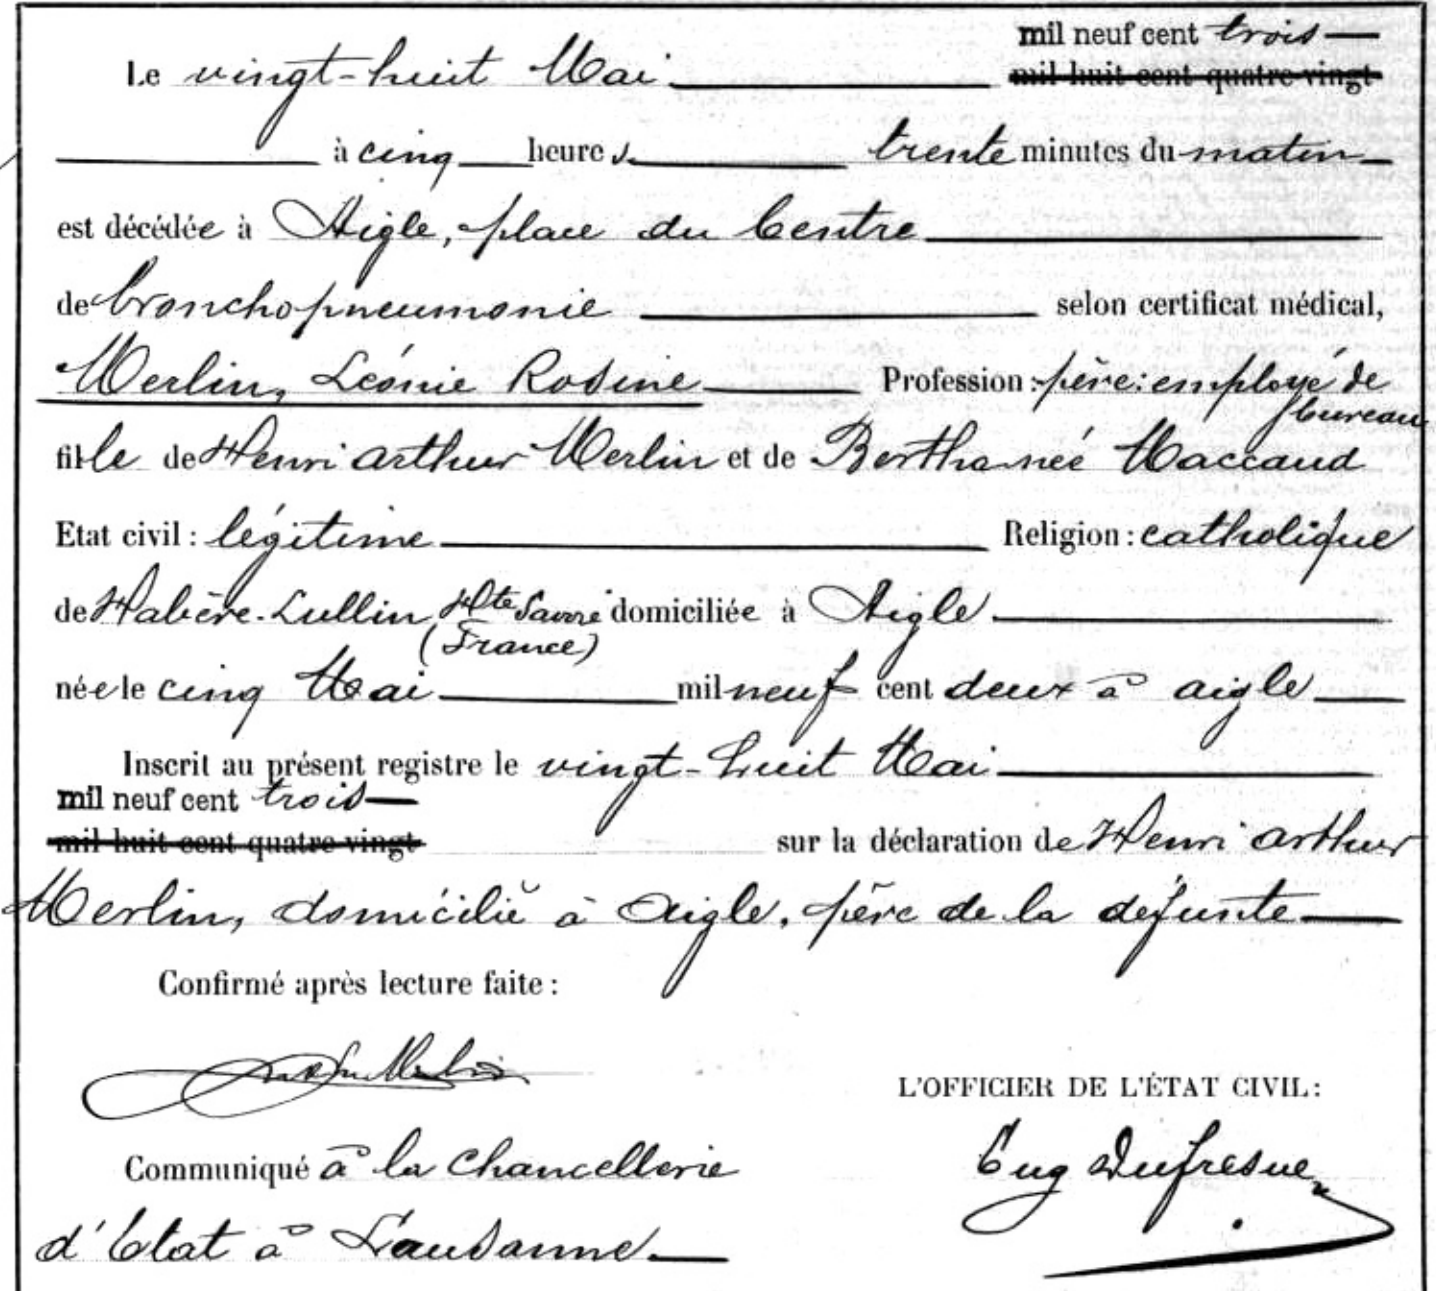 mil neuf cent trois
Le vingt-huit Mai mil huit cent quatre-vingt
à cinq heures trente minutes du matin
est décédée à Aigle, place du Centre
de bronchopneumonie selon certificat médical,
Merlin, Léonie Rosine Profession : père: employé de
bureau
fille de Henri Arthur Merlin et de Bertha née Maccaud
Etat civil : légitime Religion : catholique
de Habère-Lullin, Hte Savoie domiciliée à Aigle
(France)
née le cinq Mai mil neuf cent deux à Aigle
Inscrit au présent registre le vingt-huit Mai
mil neuf cent trois
mil huit cent quatre-vingt sur la déclaration de Henri Arthur
Merlin, domicilié à Aigle, père de la défunte
Confirmé après lecture faite :
L'OFFICIER DE L'ÉTAT CIVIL :
Communiqué à la Chancellerie Eug Dufresne
d'Etat à Lausanne